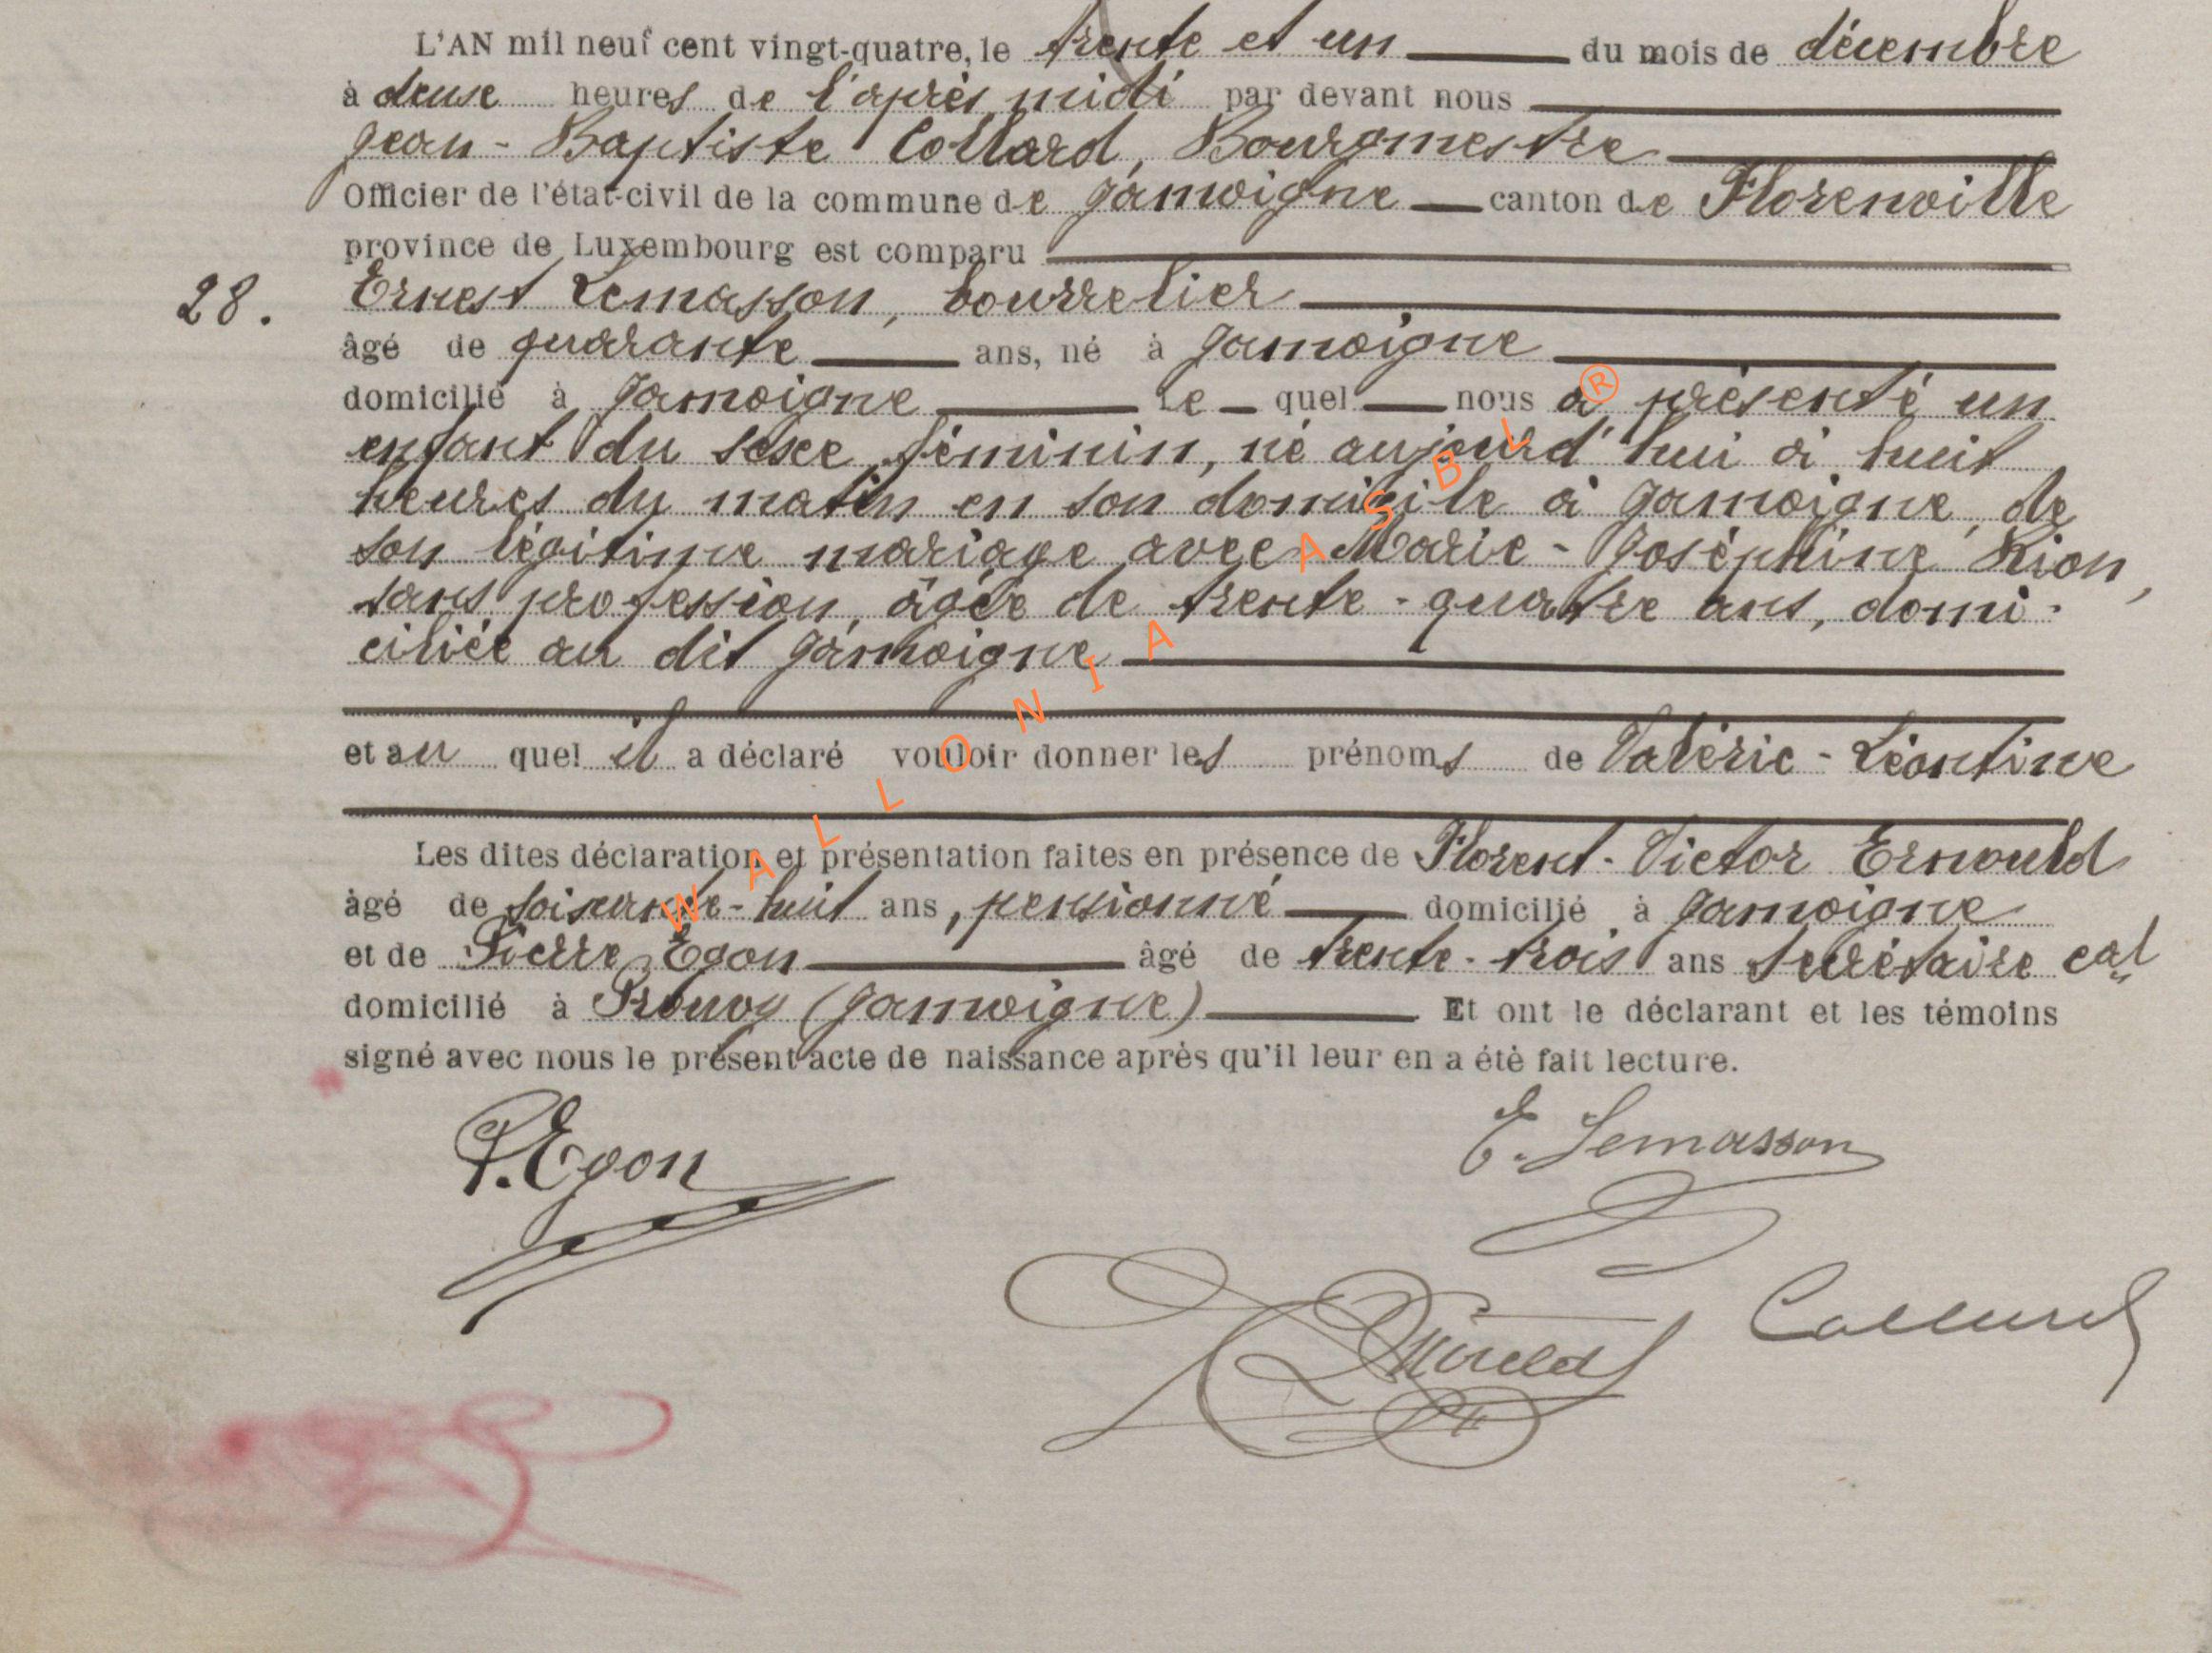 L'AN mil neuf cent vingt-quatre, le trente et un du mois de décembre
à deux heures de l'après midi par devant nous
Jean-Baptiste Collard, Bourgmestre
Officier de l'état-civil de la commune de Jamoigne canton de Florenville
province de Luxembourg est comparu
28. Ernest Lemasson, bourrelier
âgé de quarante ans, né à Jamoigne
domicilié à Jamoigne le quel nous a présenté un
enfant du sexe féminin, né aujourd'hui à huit
heures du matin en son domicile à Jamoigne, de
son légitime mariage avec Marie-Joséphine Rion,
sans profession, âgée de trente-quatre ans, domi-
ciliée au dit Jamoigne
et au quel il a déclaré vouloir donner les prénoms de Valérie-Léontine
Les dites déclaration et présentation faites en présence de Florent-Victor Ernould
âgé de soixante-huit ans, pensionné domicilié à Jamoigne
et de Pierre Egon âgé de trente-trois ans secrétaire cal
domicilié à Prouvy (Jamoigne) Et ont le déclarant et les témoins
signé avec nous le présent acte de naissance après qu'il leur en a été fait lecture.
P. Egon
E. Lemasson
Ernould
Collard
WALLONIA ASBL ®